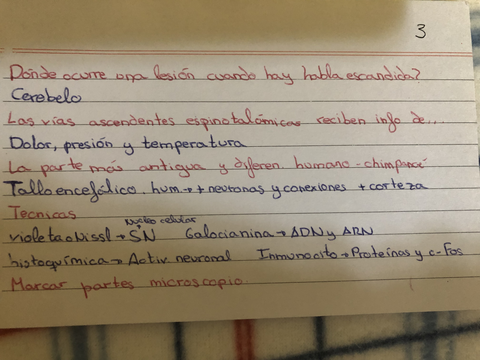 3
Dónde ocurre una lesión cuando hay habla escandida?
Cerebelo
Las vías ascendentes espinotalámicas reciben info de...
Dolor, presión y temperatura
La parte más antigua y diferen. humano - chimpancé
Tallo encefálico hum → + neuronas y conexiones + corteza
Tecnicas
Nucleo celular
violeta o Nissl → SN Galocianina → ADN y ARN
histoquímica → Activ neuronal Inmunocito → Proteínas y c-Fos
Marcar partes microscopio.